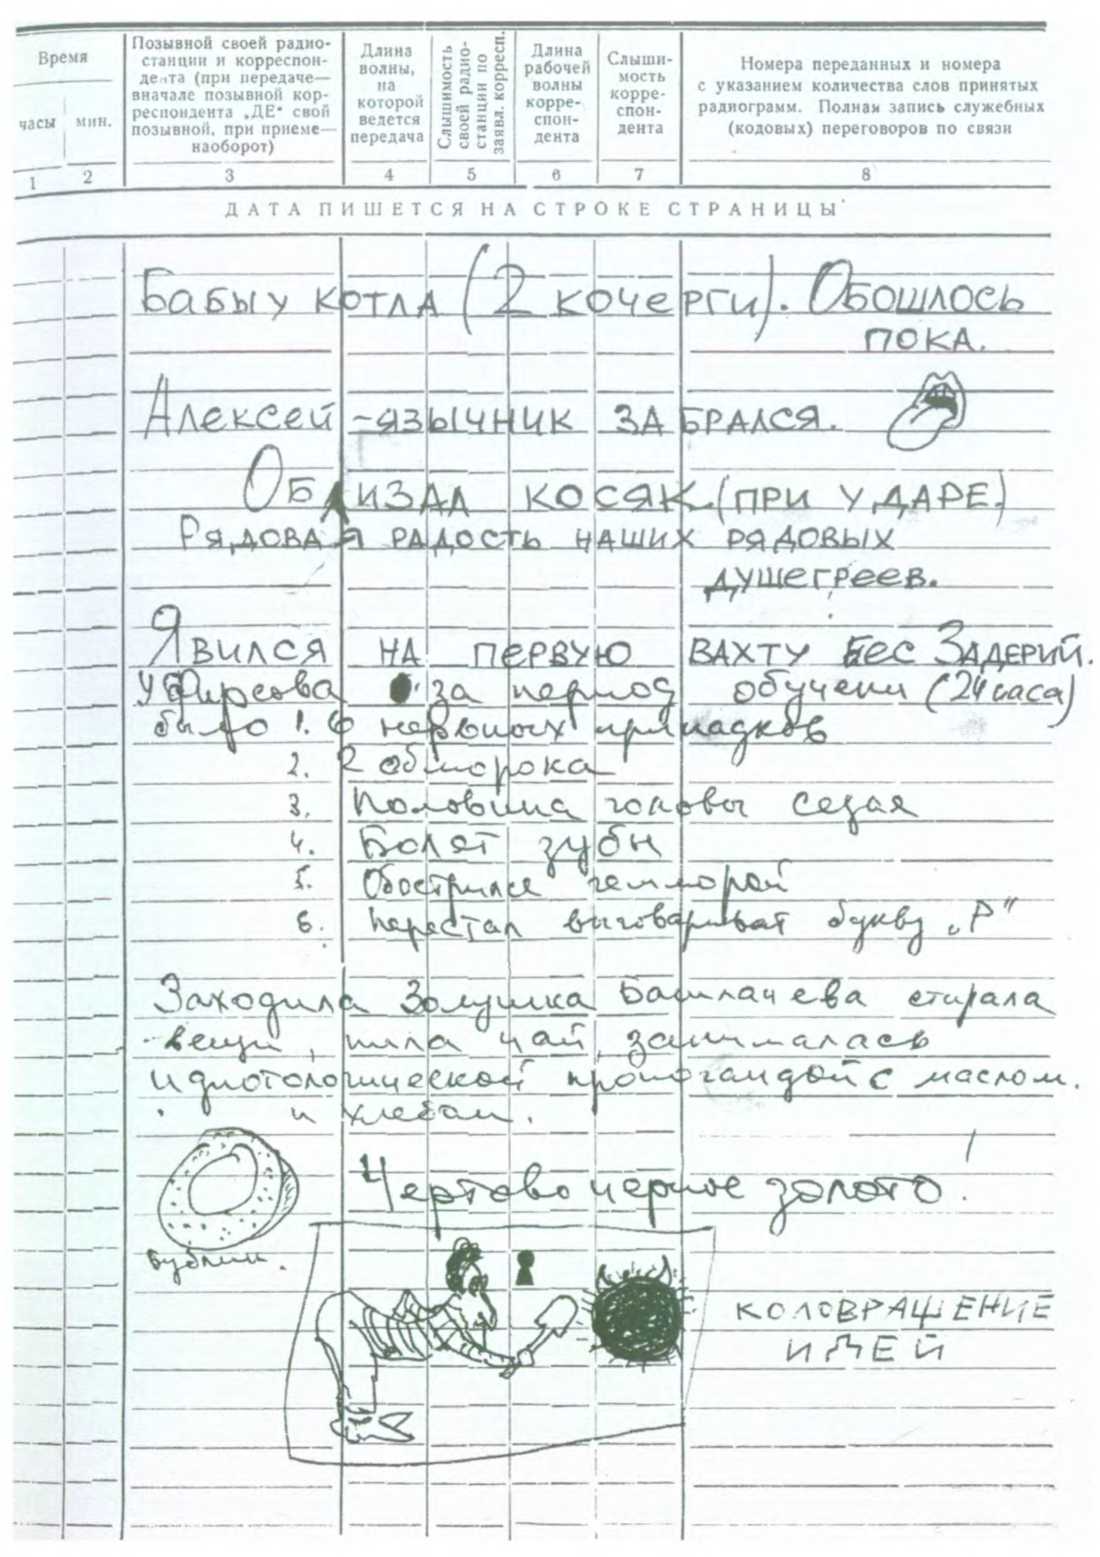 Время
часы
мин.
Позывной своей радио-
станции и корреспон-
дента (при передаче—
вначале позывной кор-
респондента „ДЕ“ свой
позывной, при приеме—
наоборот)
Длина
волны,
на
которой
ведется
передача
Слышимость
своей радио-
станции по
заявл. корресп.
Длина
рабочей
волны
корре-
спон-
дента
Слыши-
мость
корре-
спон-
дента
Номера переданных и номера
с указанием количества слов принятых
радиограмм. Полная запись служебных
(кодовых) переговоров по связи
1 2 3 4 5 6 7 8
ДАТА ПИШЕТСЯ НА СТРОКЕ СТРАНИЦЫ
Бабы у котла (2 кочерги). Обошлось
пока.
Алексей -язычник забрался.
Облизал косяк.(при ударе.)
Рядовая радость наших рядовых
душегреев.
Явился на первую вахту бес Задерий.
У Фирсова за период обучени (24 часа)
было 1. 6 нервных припадков
2. 2 обморока
3. Половина головы седая
4. Болят зубы
5. Обострился геморой
6. перестал выговариват букву „Р“
Заходила Золушка Башлачева стирала
вещи, пила чай, занималась
идиотологической пропогандой с маслом.
и хлебом.
Чертово черное золото!
бублик.
КОЛОВРАЩЕНИЕ
ИДЕЙ